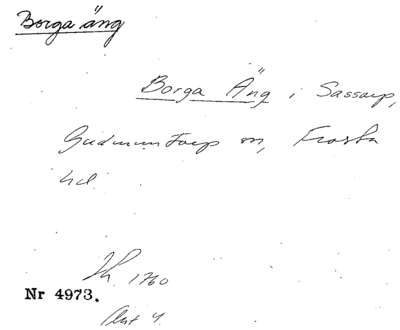 Borga äng
Borga Äng i Sassarp,
Gudmuntorp sn, Frosta
hd
Th. 1760
Nr 4973.
Akt 4.